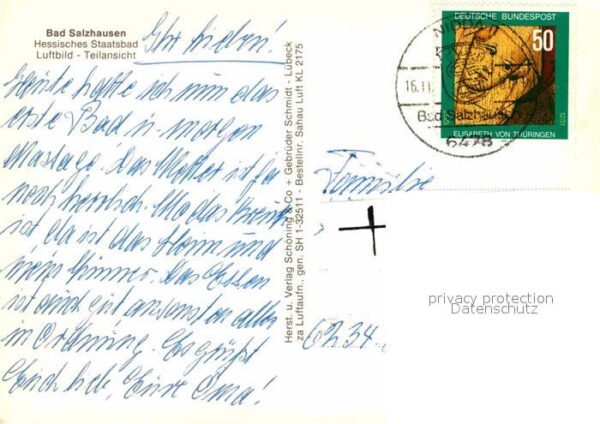 Bad Salzhausen
Hessisches Staatsbad
Luftbild - Teilansicht
Ihr Lieben!
Heute hatte ich nun das
erste Bad u. morgen
Massage. Das Wetter ist ja
noch herrlich. Wo das Kreuz
ist da ist das Heim und
mein Zimmer. Das Essen
ist auch gut ansonsten alles
in Ordnung. Es grüßt
Euch lieb, Eure Oma!
Herst. u. Verlag Schöning & Co + Gebrüder Schmidt - Lübeck
za Luftaufn., gen. SH 1-32511 - Bestellnr. Sahau Luft KL 2175
DEUTSCHE BUNDESPOST
50
ELISABETH VON THÜRINGEN
1981
NIDDA
16.11.
Bad Salzhausen
6478
Familie
6234
privacy protection
Datenschutz